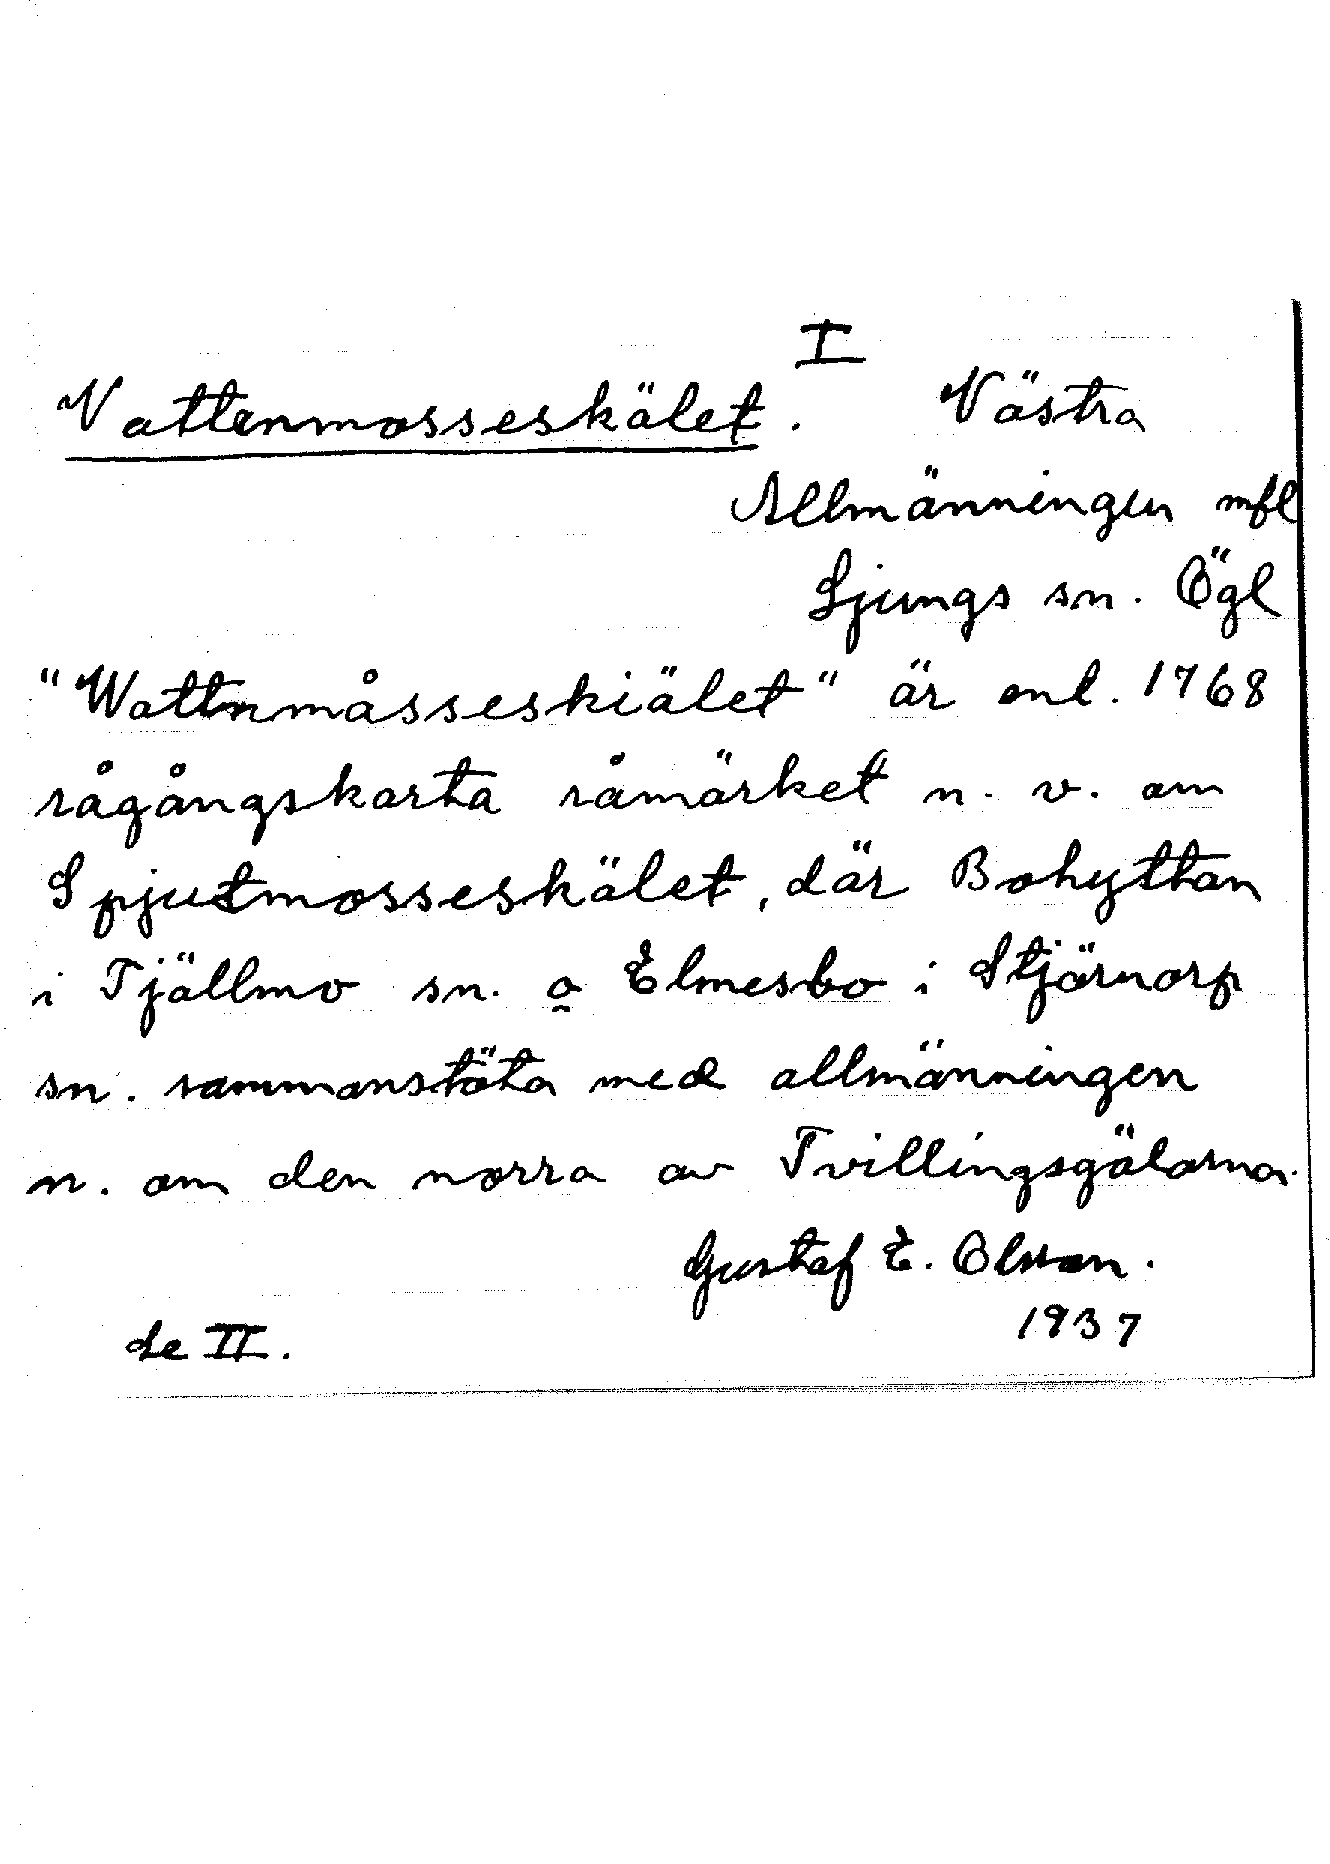 I
Vattenmosseskälet. Västra
Allmänningen mfl
Ljungs sn. Ögl
"Wattnmåsseskiälet" är enl. 1768
rågångskarta råmärket n. v. om
Spjutmosseskälet, där Bohyttan
i Tjällmo sn. o Elmesbo i Stjärnorp
sn. sammanstöta med allmänningen
n. om den norra av Tvillingsgölarna.
Gustaf E. Olsson.
1937
Se II.